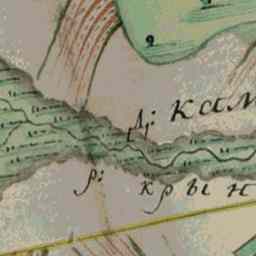 9
Д: кам
р: крын